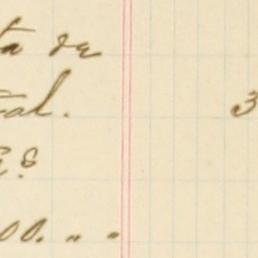 ta de
tal.
3
00. " "